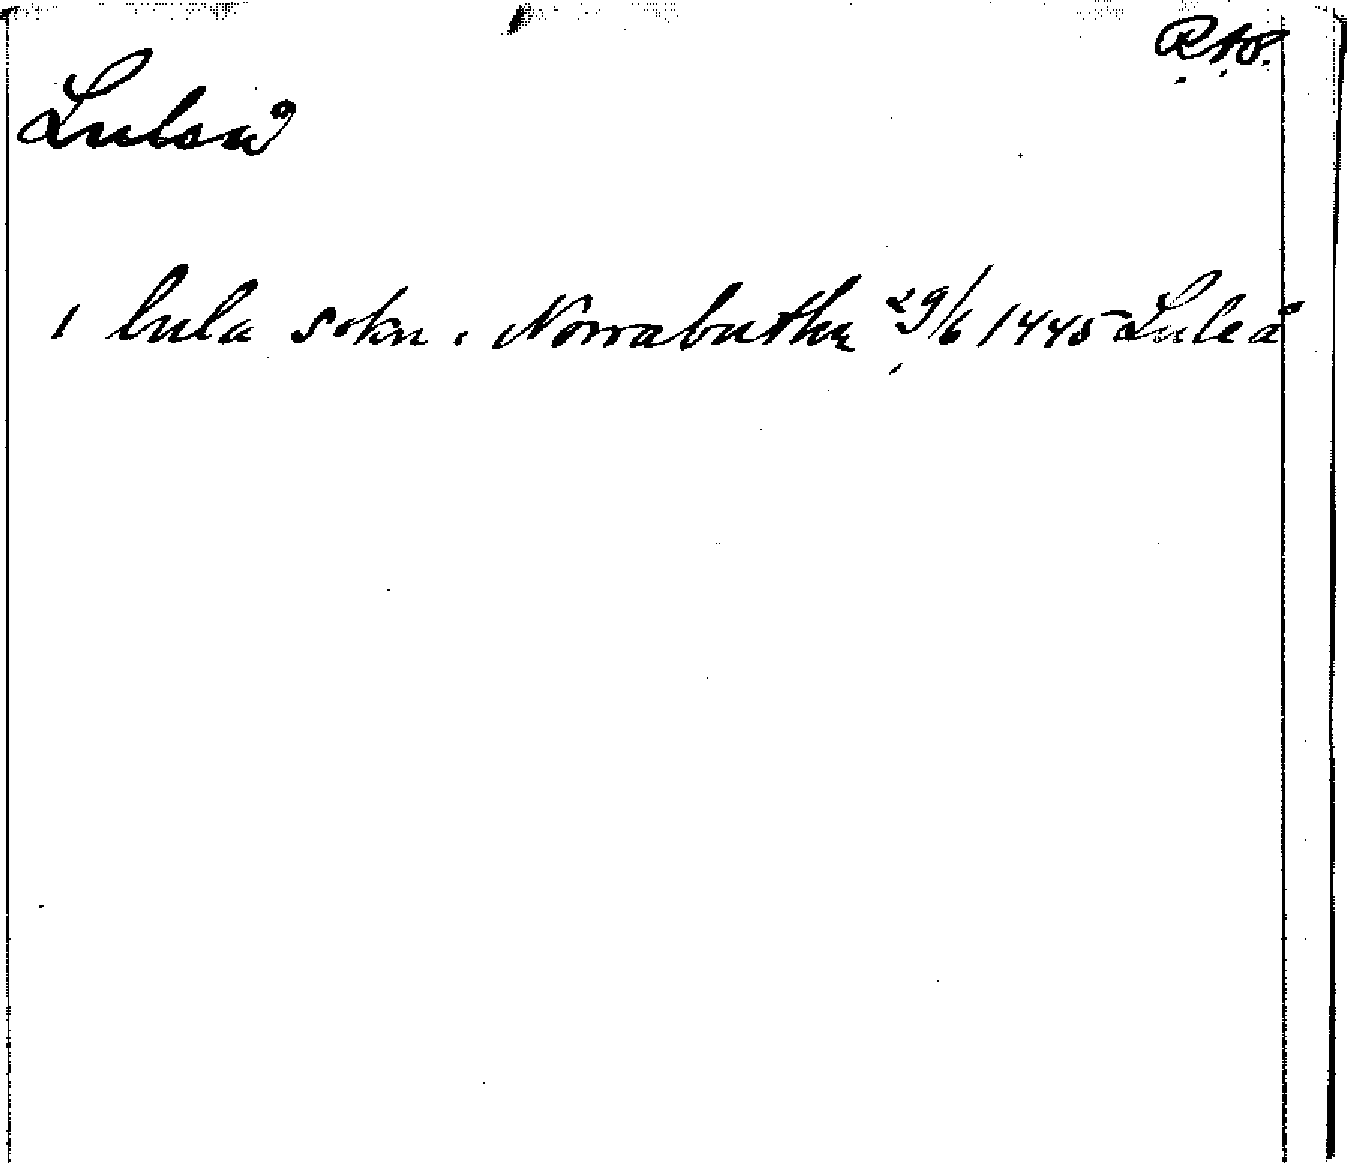 Luleå
i lula sokn i Norrabuthn 29/6 1445 Luleå